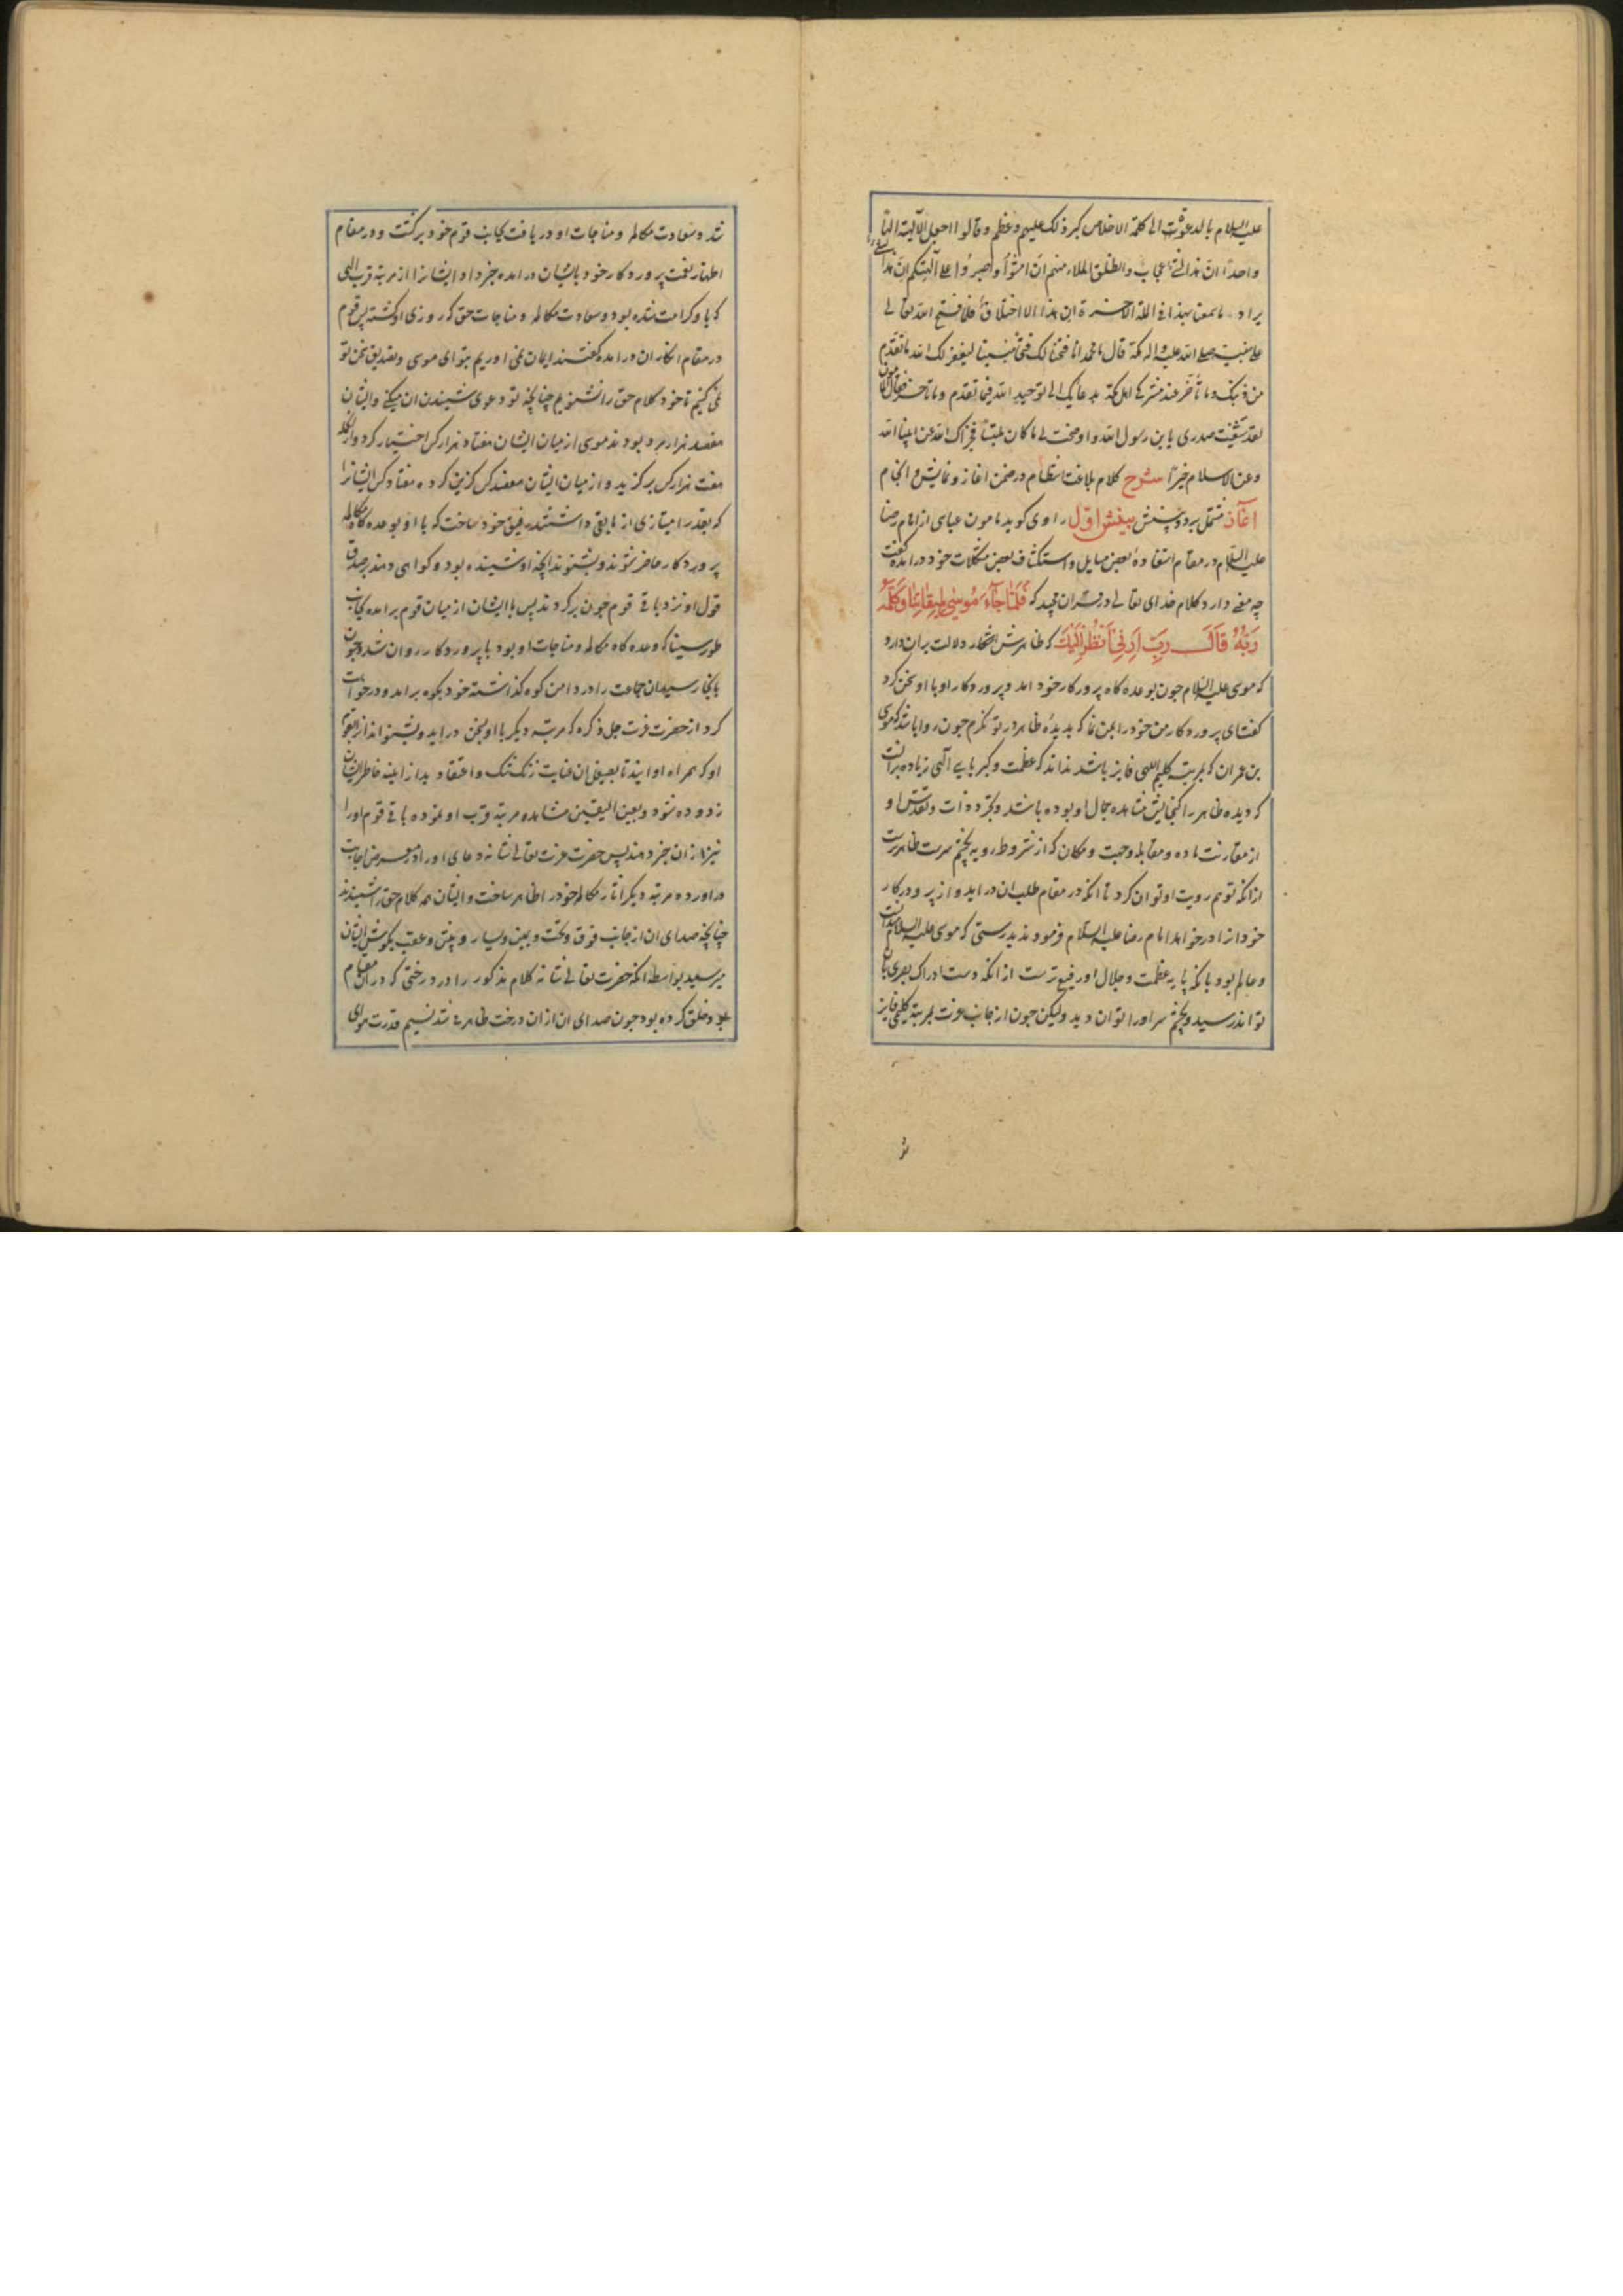 علیه السلام بالدعوة الی کلمة الاخلاص کبر ذلک علیهم و عظم و قالوا اجعل الآلهة الها
واحدا ان هذا لشئ عجاب وانطلق الملاء منهم ان امشوا واصبروا علی آلهتکم ان هذا لشئ
یراد ما سمعنا بهذا فی الملة الاخرة ان هذا الا اختلاق فلما فتح الله تعالی
علی نبیه صلی الله علیه واله مکة قال یا محمد انا فتحنا لک فتحا مبینا لیغفر لک الله ما تقدم
من ذنبک و ما تأخر عند مشرکی اهل مکة بدعایک الی توحید الله فیما تقدم وما تأخر فقال المأمون
لقد شفیت صدری یا بن رسول الله و اوضحت لی ما کان ملتبسا فجزاک الله عن انبیاء الله
وعن الاسلام خیرا شرح کلام بلاغت انتظام در ضمن اغاز و نمایش و انجام
اغاز مشتمل بر دو بینش بینش اول راوی کوید مامون عباسی از امام رضا
علیه السلام در مقام استفادهٔ بعض مسایل و استکشاف بعض مشکلات خود درامده کفت
چه معنی دارد کلام خدای تعالی در قران مجید که فلما جاء موسی لمیقاتنا و کلمه
ربه قال رب ارنی انظر الیک که ظاهرش اشعار دلالت بر آن دارد
که موسی علیه السلام چون بوعده کاه پرورکار خود امد و پروردکار او با او سخن کرد
کفت ای پروردکار من خود را بمن نما که بدیدهٔ ظاهر در تو نکرم چون روا باشد که موسی
بن عمران که بمرتبهٔ کلیم اللهی فایز باشد نداند که عظمت و کبریایی الهی زیاده بر انست
که دیده ظاهر را کنجایش مشاهده جمال او بوده باشد و تجرد ذات و تقدس او
از مقارنت ماده و مقابله وجهت و مکان که از شروط رویه بچشم سرست ظاهرترست
از انکه توهم رویت او توان کرد تا انکه در مقام طلب ان در اید و از پروردکار
خود انرا درخواهد امام رضا علیه السلام فرمود بدرستی که موسی علیه السلام میدانست
و عالم بود بانکه پایه عظمت و جلال او رفیع ترست از انکه دست ادراک بصری بان
تواند رسید و بچشم سر او را توان دید ولیکن چون از جانب عزت بمرتبهٔ کلیمی فایز
شد و سعادت مکالمه و مناجات او دریافت بجانب قوم خود برکشت و در مقام
اظهار نعت پروردکار خود بایشان درامده خبر داد ایشانرا از مرتبهٔ قرب الهی
که باو کرامت شده بود و سعادت مکالمه و مناجات حق که روزی او کشته پس قوم
در مقام انکار ان درامده کفتند ایمان نمی اوریم بتو ای موسی و تصدیق سخن تو
نمی کنیم تا خود کلام حق را نشنویم چنانچه تو دعوی شنیدن ان میکنی و ایشان
هفصد هزار مرد بودند موسی از میان ایشان هفتاد هزار کس اختیار کرد و از انجمله
هفت هزار کس برکزید و از میان ایشان هفصد کس کزین کرده هفتاد کس ایشانرا
که بقدر امتیازی از مابقی داشتند رفیق خود ساخت که با او بوعده کاه مکالمه
پروردکار حاضر شوند و بشنوند انچه او شنیده بود و کواهی دهند بر صدق
قول او نزد باقی قوم چون برکردند پس با ایشان از میان قوم برامده بجانب
طور سینا که وعده کاه مکالمه و مناجات او بود با پروردکار روان شد و چون
بانجا رسید ان جماعت را در دامن کوه کذاشته خود بکوه برامد و درخواست
کرد از حضرت عزت جل ذکره که مرتبه دیکر با او بسخن در اید و بشنواند از قوم
او که همراه او ایند تا بصیقل ان عنایت زنک شک و اعتقاد بد از اینه خاطر ایشان
زدوده شود و بعین الیقین مشاهده مرتبه قرب او نموده باقی قوم او را
نیز از ان خبر دهند پس حضرت عزت تعالی شانه دعای او را در معرض اجابت
دراورده مرتبه دیکر اثار مکالمه خود را ظاهر ساخت و ایشان همه کلام حق را شنیدند
چنانچه صدای ان از جانب فوق و تحت و یمین و یسار و پیش و عقب بکوش ایشان
میرسید بواسطه انکه حضرت تعالی شانه کلام مذکور را در درختی که در ان مقام
بود خلق کرده بود چون صدای ان از ان درخت ظاهر می شد نسیم قدرت